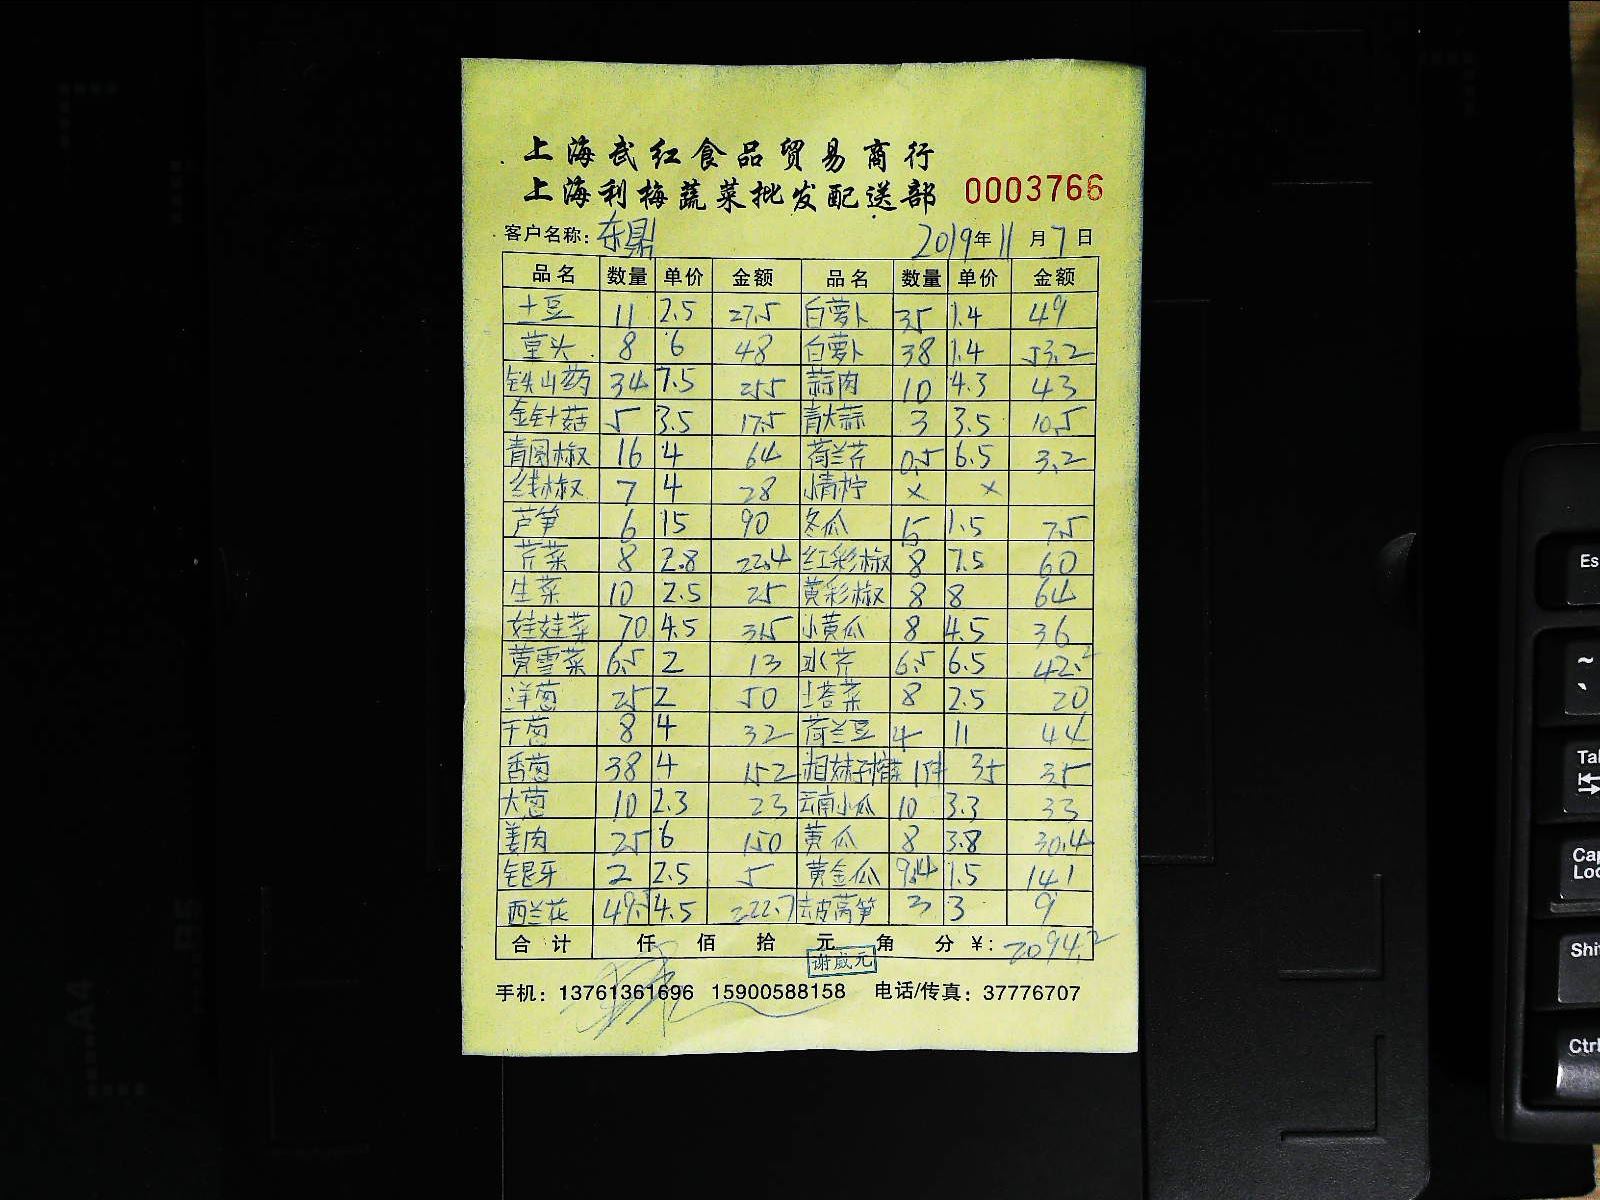 上海武红食品贸易商行
上海利梅蔬菜批发配送部 0003766
客户名称: 东鼎 2019年11月7日
品名 数量 单价 金额 品名 数量 单价 金额
土豆 11 2.5 27.5 白萝卜 35 1.4 49
头 8 6 48 白萝卜 38 1.4 53.2
铁山药 34 7.5 255 蒜肉 10 4.3 43
金针菇 5 3.5 17.5 青大蒜 3 3.5 10.5
青圆椒 16 4 64 荷兰芹 0.5 6.5 3.2
线椒 7 4 28 小青柠 × ×
芦笋 6 15 90 冬瓜 1.5 7.5
芹菜 8 2.8 22.4 红彩椒 8 7.5 60
生菜 10 2.5 25 黄彩椒 8 8 64
娃娃菜 70 4.5 315 小黄瓜 8 4.5 36
黄雪菜 6.5 2 13 水芹 6.5 6.5 42.2
洋葱 25 2 50 塔菜 8 2.5 20
干葱 8 4 32 荷兰豆 4 11 44
香葱 38 4 152 湘妹子 菜 1件 35 35
大葱 10 2.3 23 云南小瓜 10 3.3 33
姜肉 25 6 150 黄瓜 8 3.8 30.4
银牙 2 2.5 5 黄金瓜 9.4 1.5 14.1
西兰花 49.5 4.5 222.7 去皮莴笋 3 3 9
合计 仟 佰 拾 元 角 分 ¥: 2094.2
谢威元
手机: 13761361696 15900588158 电话/传真: 37776707
Es
~
`
Tab
Cap
Loc
Shi
Ctrl
A4
B5